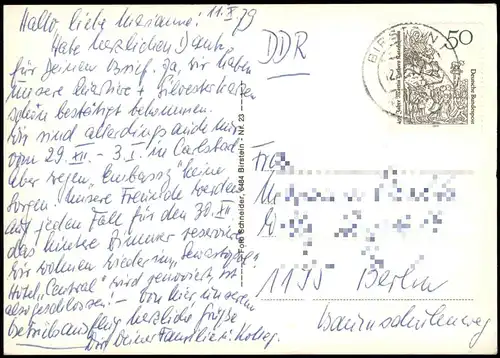 Hallo, liebe Marianne! 11.X.79
Habe herzlichen Dank
für Deinen Brief. Ja, wir haben
unsere Quartiere + Silvesterkarten
schon bestätigt bekommen.
Wir sind allerdings auch nur
vom 29. XII. - 3. I. in Carlsbad
aber wegen "Embassy" keine
Sorgen. Unsere Freunde werden
auf jeden Fall für den 30. XII.
das hintere Zimmer reservieren
Wir wohnen wiederum
Hotel "Central" wird renoviert, ist
also geschlossen! - von hier unserem
Betriebsausflug herzliche Grüße
Dir u. Deiner Familie
DDR
BIRSTEIN
50
Deutsche Bundespost
Foto Schneider, 6484 Birstein - Nr. 23
1195 Berlin
Baumschulenweg